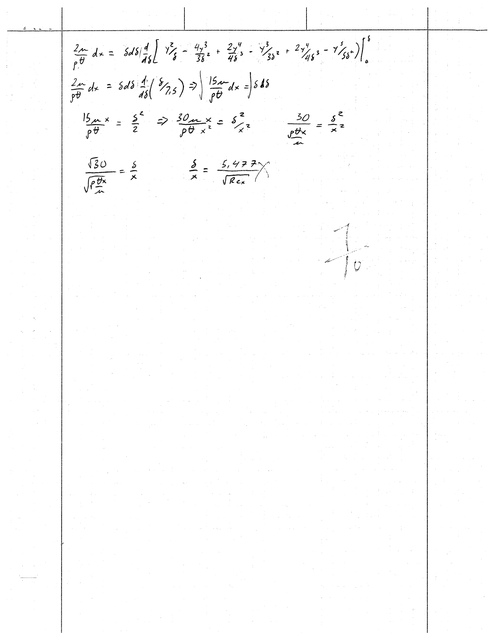 2μ/ρU dx = δdδ d/dδ [ y²/δ - 4y³/3δ² + 2y⁴/4δ³ - y³/3δ² + 2y⁴/4δ³ - y⁵/5δ⁴ ) ]|₀^δ
2μ/ρU dx = δdδ d/dδ ( δ/7,5 ) ⇒ ∫ 15μ/ρU dx = ∫ δdδ
15μx/ρU = δ²/2 ⇒ 30μ/ρU x/x² = δ²/x² 30/(ρUx/μ) = δ²/x²
√30/√(ρUx/μ) = δ/x δ/x = 5,477/√Rex
7
10